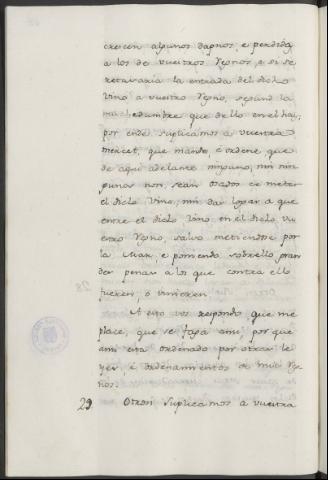 crecen algunos dapnos, e perdida
a los de vuestros Regnos, e si se
retararia la entrada del dicho
vino a vuestro Regno, segund la
muchedumbre que dello en el hay;
por ende suplicamos a vuestra
merced, que mande, e ordene que
de aqui adelante ninguno, nin nin
gunos non sean osados de meter
el dicho vino; nin dar logar a que
entre el dicho vino en el dicho vu
estro Regno, salvo metiendose por
la Mar, e poniendo sobrello gran
des penas a los que contra ello
fueren, o vinieren
A esto vos respondo, que me
place, que se faga ansi, porque
ansi esta ordenado por otras le
yes, e ordenamientos de mis Reg
nos.
29. Otrosi suplicamos a vuestra